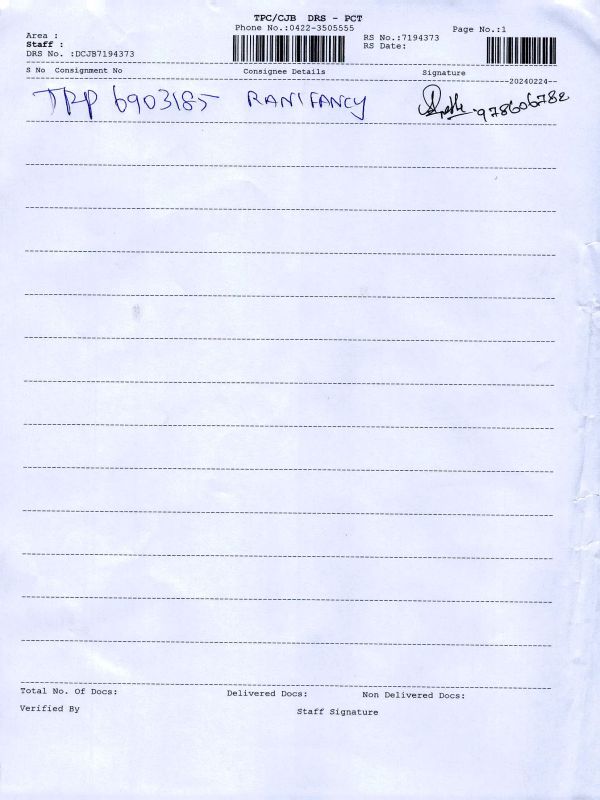 TPC/CJB DRS - PCT
Phone No.:0422-3505555
Page No.:1
Area :
RS No.:7194373
Staff :
RS Date:
DRS No. :DCJB7194373
S No Consignment No Consignee Details Signature
20240224
TRP 6903185 RANI FANCY 978606782
Total No. Of Docs: Delivered Docs: Non Delivered Docs:
Verified By Staff Signature